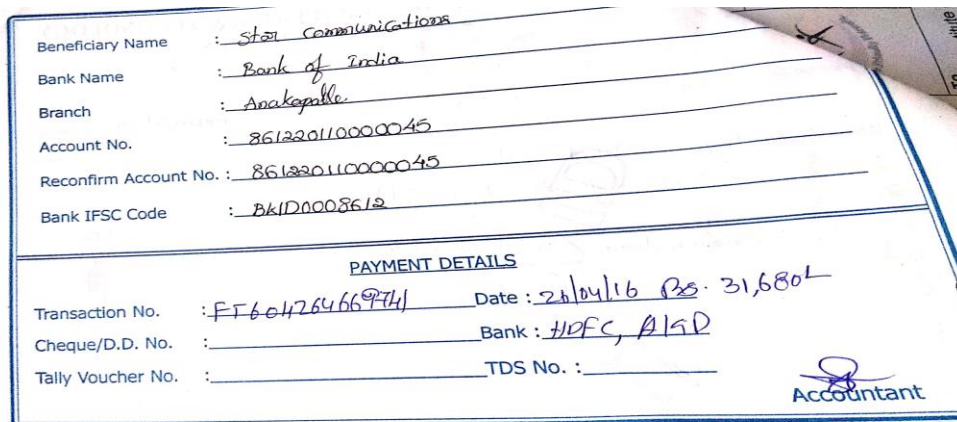 Beneficiary Name : Star Communications
Bank Name : Bank of India
Branch : Anakapalle.
Account No. : 861220110000045
Reconfirm Account No. : 861220110000045
Bank IFSC Code : BKID0008612
PAYMENT DETAILS
Transaction No. : Date : 26/04/16 Rs. 31,680
Cheque/D.D. No. : Bank : HDFC,
Tally Voucher No. : TDS No. :
Accountant